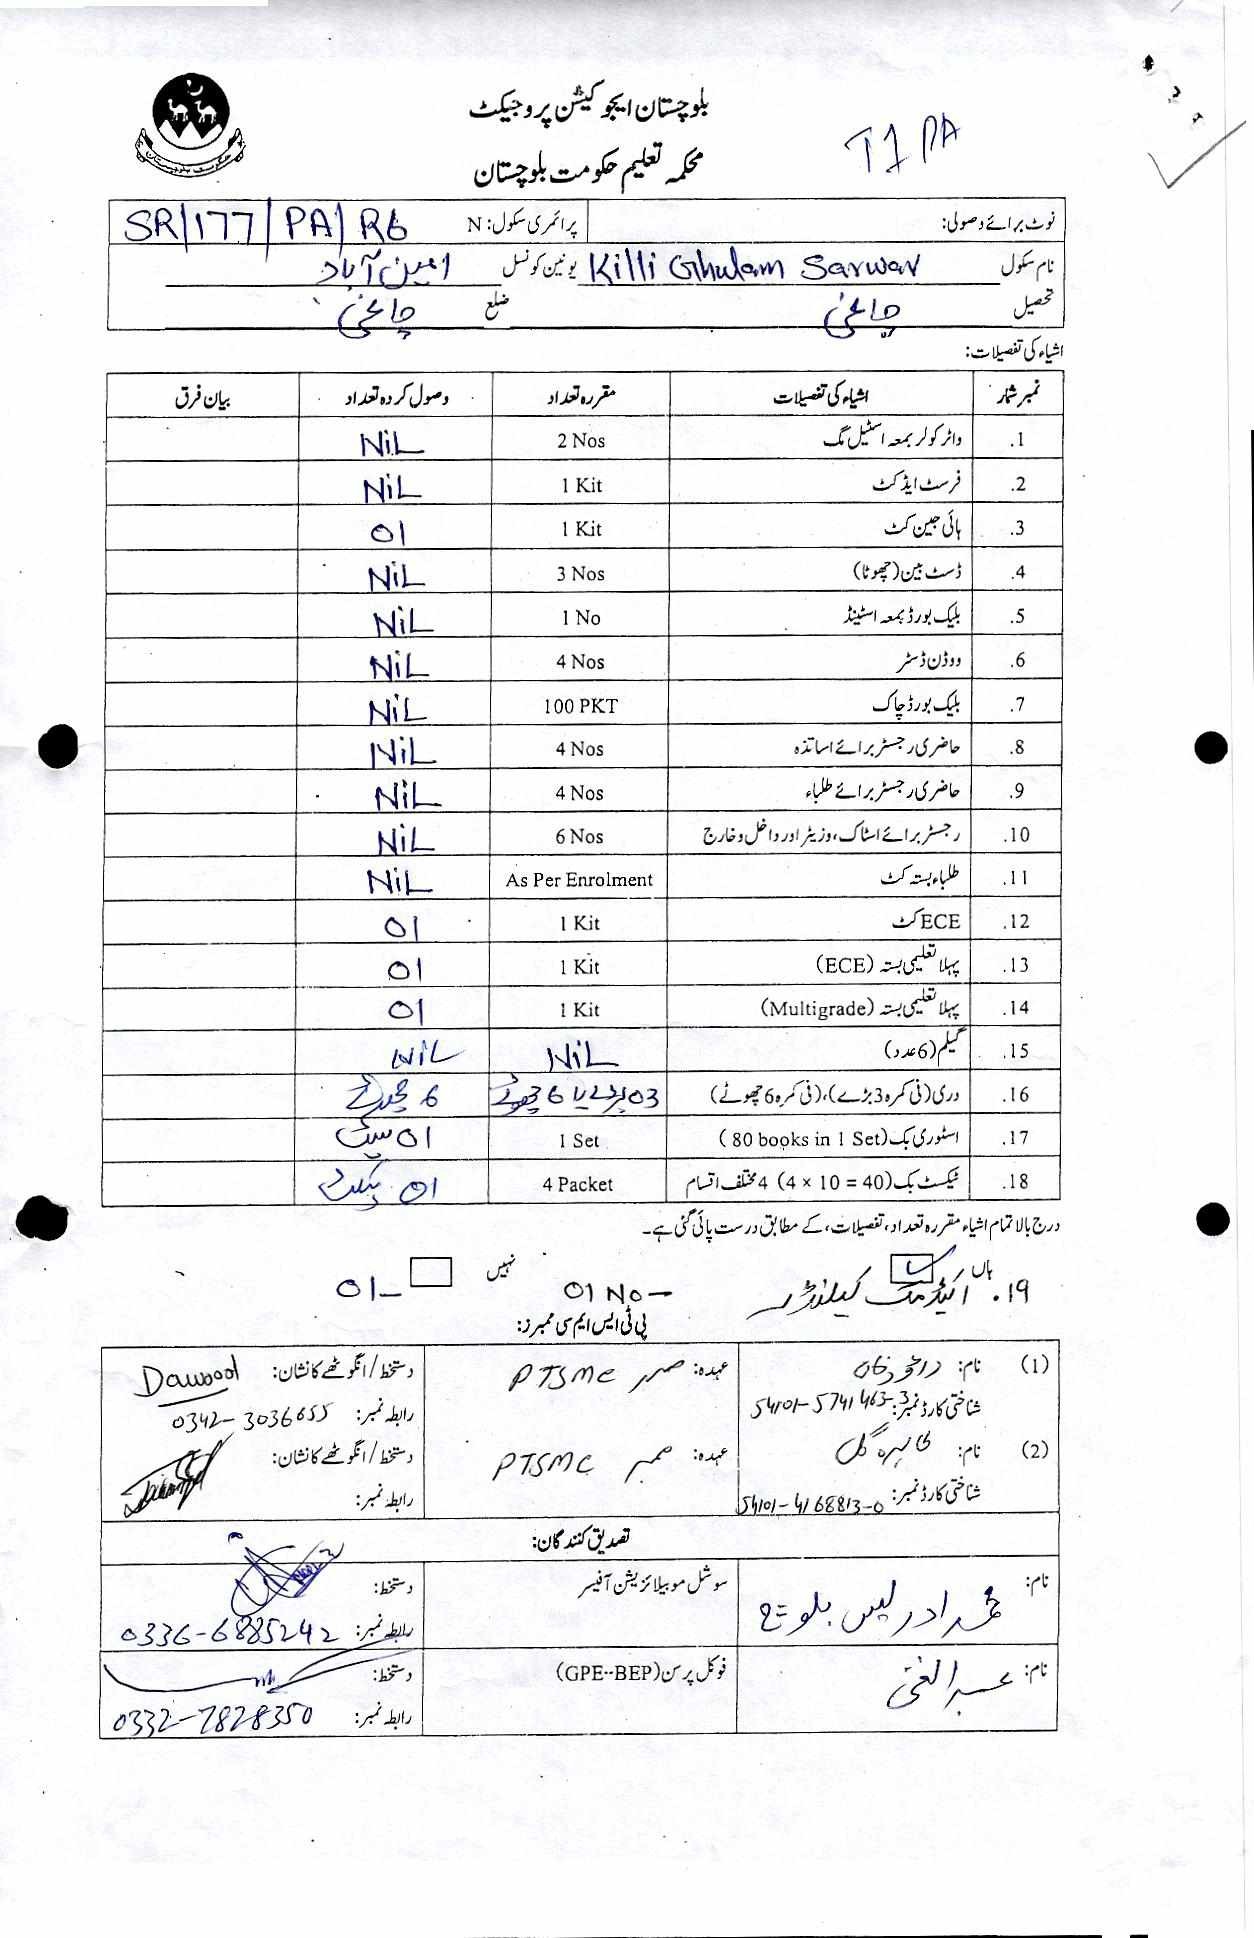 بلوچستان ایجوکیشن پروجیکٹ
محکمہ تعلیم حکومت بلوچستان
T1 PA
نوٹ برائے وصولی: پرائمری سکول: N SR/177/PA/R6
نام سکول Killi Ghulam Sarwar یونین کونسل امین آباد
تحصیل چاغی ضلع چاغی
اشیاء کی تفصیلات:
نمبر شمار اشیاء کی تفصیلات مقررہ تعداد وصول کردہ تعداد بیان فرق
1. واٹر کولر بمعہ اسٹیل مگ 2 Nos NiL
2. فرسٹ ایڈ کٹ 1 Kit NiL
3. ہائی جین کٹ 1 Kit 01
4. ڈسٹ بین (چھوٹا) 3 Nos NiL
5. بلیک بورڈ بمعہ اسٹینڈ 1 No NiL
6. ووڈن ڈسٹر 4 Nos NiL
7. بلیک بورڈ چاک 100 PKT NiL
8. حاضری رجسٹر برائے اساتذہ 4 Nos NiL
9. حاضری رجسٹر برائے طلباء 4 Nos NiL
10. رجسٹر برائے اسٹاک، وزیٹر اور داخل و خارج 6 Nos NiL
11. طلباء بستہ کٹ As Per Enrolment NiL
12. ECE کٹ 1 Kit 01
13. پہلا تعلیمی بستہ (ECE) 1 Kit 01
14. پہلا تعلیمی بستہ (Multigrade) 1 Kit 01
15. گیلم (6 عدد) NiL NiL
16. دری (فی کمرہ 3 بڑے)، (فی کمرہ 6 چھوٹے) 03 بڑے یا 6 چھوٹے 6 چھوٹے
17. اسٹوری بک (80 books in 1 Set) 1 Set 01 سیٹ
18. ٹیکسٹ بک (4 × 10 = 40) 4 مختلف اقسام 4 Packet 01 پیکٹ
درج بالا تمام اشیاء مقررہ تعداد، تفصیلات، کے مطابق درست پائی گئی ہے۔
ہاں نہیں
19. اکیڈمک کیلنڈر 01 No- 01-
پی ٹی ایس ایم سی ممبرز:
(1) نام: عہدہ: ممبر PTSMC دستخط/انگوٹھے کا نشان: Dawood
شناختی کارڈ نمبر: 54101-5741463-3 رابطہ نمبر: 0342-3036655
(2) نام: عہدہ: ممبر PTSMC دستخط/انگوٹھے کا نشان:
شناختی کارڈ نمبر: 54101-4168813-0 رابطہ نمبر:
تصدیق کنندگان:
نام: محمد ادریس بلوچ سوشل موبیلائزیشن آفیسر دستخط:
رابطہ نمبر: 0336-6885242
نام: عبدالغنی فوکل پرسن (GPE--BEP) دستخط:
رابطہ نمبر: 0332-7828350